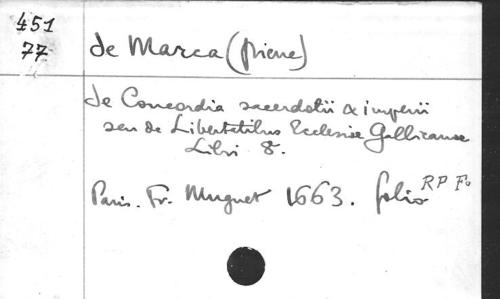 451
77
de Marca (Pierre)
de Concordia sacerdotii & imperii
seu de Libertatibus Ecclesiae Gallicanae
Libri 8.
Paris. Fr. Muguet 1663. folio RP Fo